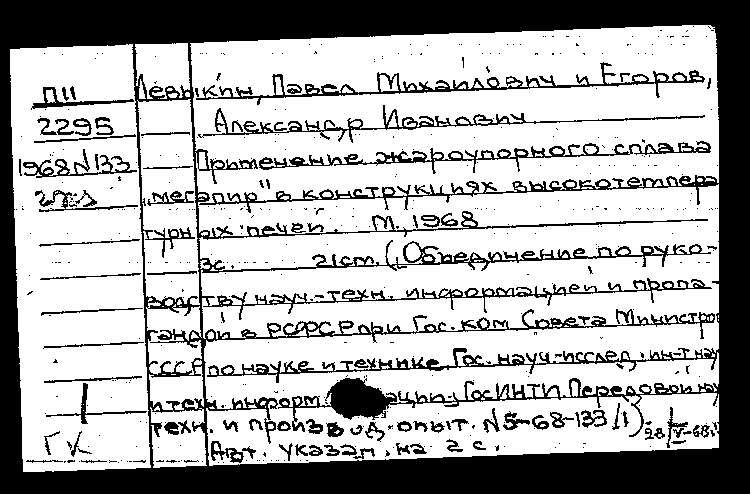 П11 Левыкин, Павел Михайлович и Егоров,
2295 Александр Иванович
1968 N133 Применение жароупорного сплава
„мегапир" в конструкциях высокотемпера
турных печей. М., 1968
3с. 21см. (Объединение по руко-
водству науч.-техн. информацией и пропа-
гандой в РСФСР при Гос. ком Совета Министров
СССР по науке и технике. Гос. науч.-исслед. ин-т науч
и техн. информации. ГосИНТИ. Передовой науч
техн. и производ. опыт. N5-68-133/1)
28/V-68.
ГК Авт. указан. на 2 с.